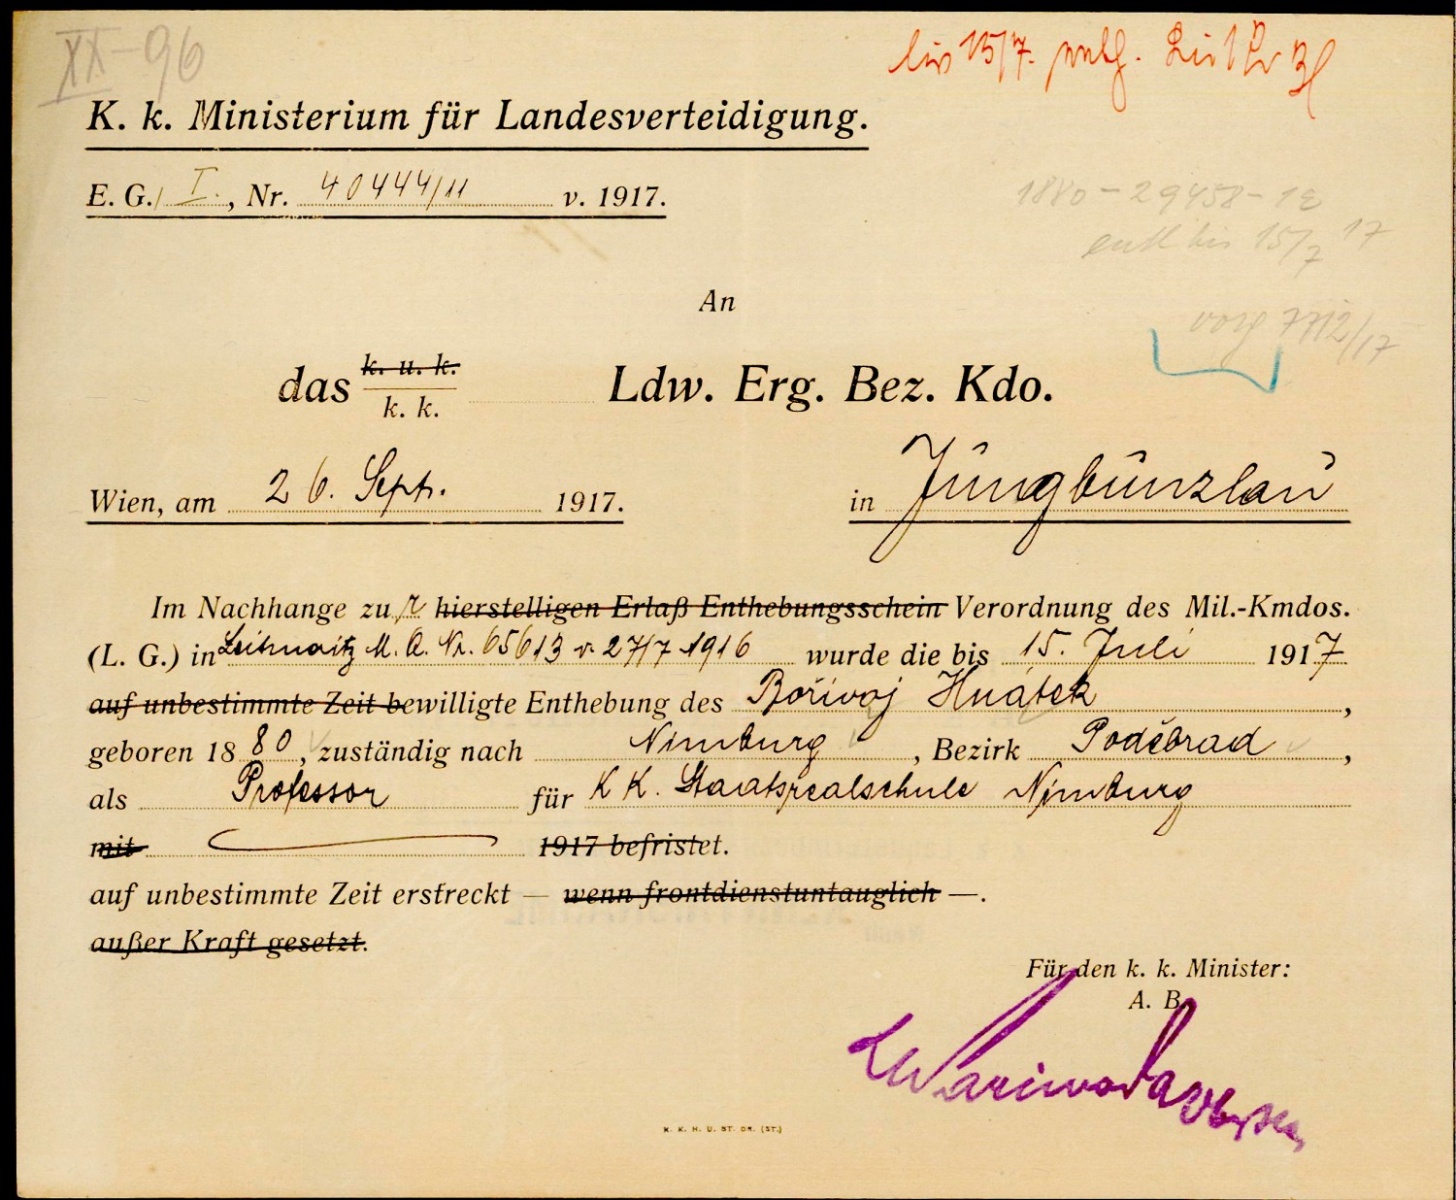 XX-96
bis 15/7.
K. k. Ministerium für Landesverteidigung.
E. G./ I., Nr. 40444/11 v. 1917.
1880 - 29458-12
enth bis 15/7 17
vorg 7712/17
An
das k. u. k. Ldw. Erg. Bez. Kdo.
k. k.
Wien, am 26. Sept. 1917.
in Jungbunzlau
Im Nachhange zur hierstelligen Erlaß Enthebungsschein Verordnung des Mil.-Kmdos.
(L. G.) in Leitmeritz M. A. Nr. 65613 v. 27/7 1916 wurde die bis 15. Juli 1917
auf unbestimmte Zeit bewilligte Enthebung des Bořivoj Hnátek,
geboren 1880, zuständig nach Nimburg, Bezirk Poděbrad,
als Professor für K K. Staatsrealschule Nimburg
mit 1917 befristet.
auf unbestimmte Zeit erstreckt — wenn frontdienstuntauglich —.
außer Kraft gesetzt.
Für den k. k. Minister:
A. B.
K. K. H. U. ST. DR. (ST.)